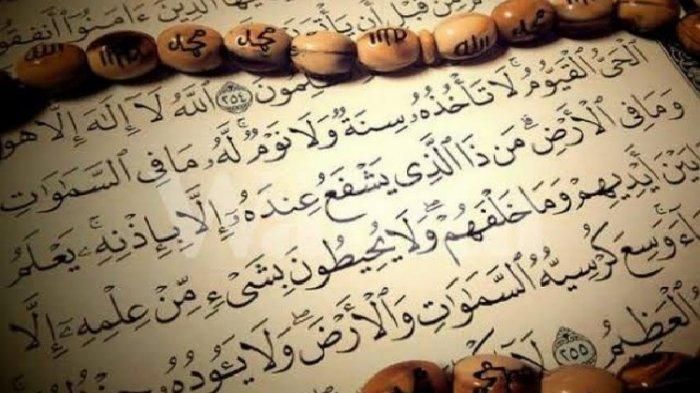 ٱلَّذِينَ ءَامَنُوٓا۟ أَنفِقُوا۟
مِّن قَبْلِ أَن
الله محمد محمد الله
٢٥٤ ٱللَّهُ لَآ إِلَٰهَ إِلَّا هُوَ
ٱلْحَىُّ ٱلْقَيُّومُ ۚ لَا تَأْخُذُهُۥ سِنَةٌ وَلَا نَوْمٌ ۚ لَّهُۥ مَا فِى ٱلسَّمَٰوَٰتِ
وَمَا فِى ٱلْأَرْضِ ۗ مَن ذَا ٱلَّذِى يَشْفَعُ عِندَهُۥٓ إِلَّا بِإِذْنِهِۦ ۚ يَعْلَمُ
بَيْنَ أَيْدِيهِمْ وَمَا خَلْفَهُمْ ۖ وَلَا يُحِيطُونَ بِشَىْءٍ مِّنْ عِلْمِهِۦٓ إِلَّا
وَسِعَ كُرْسِيُّهُ ٱلسَّمَٰوَٰتِ وَٱلْأَرْضَ ۖ وَلَا يَـُٔودُهُۥ
ٱلْعَظِيمُ ٢٥٥ لَآ